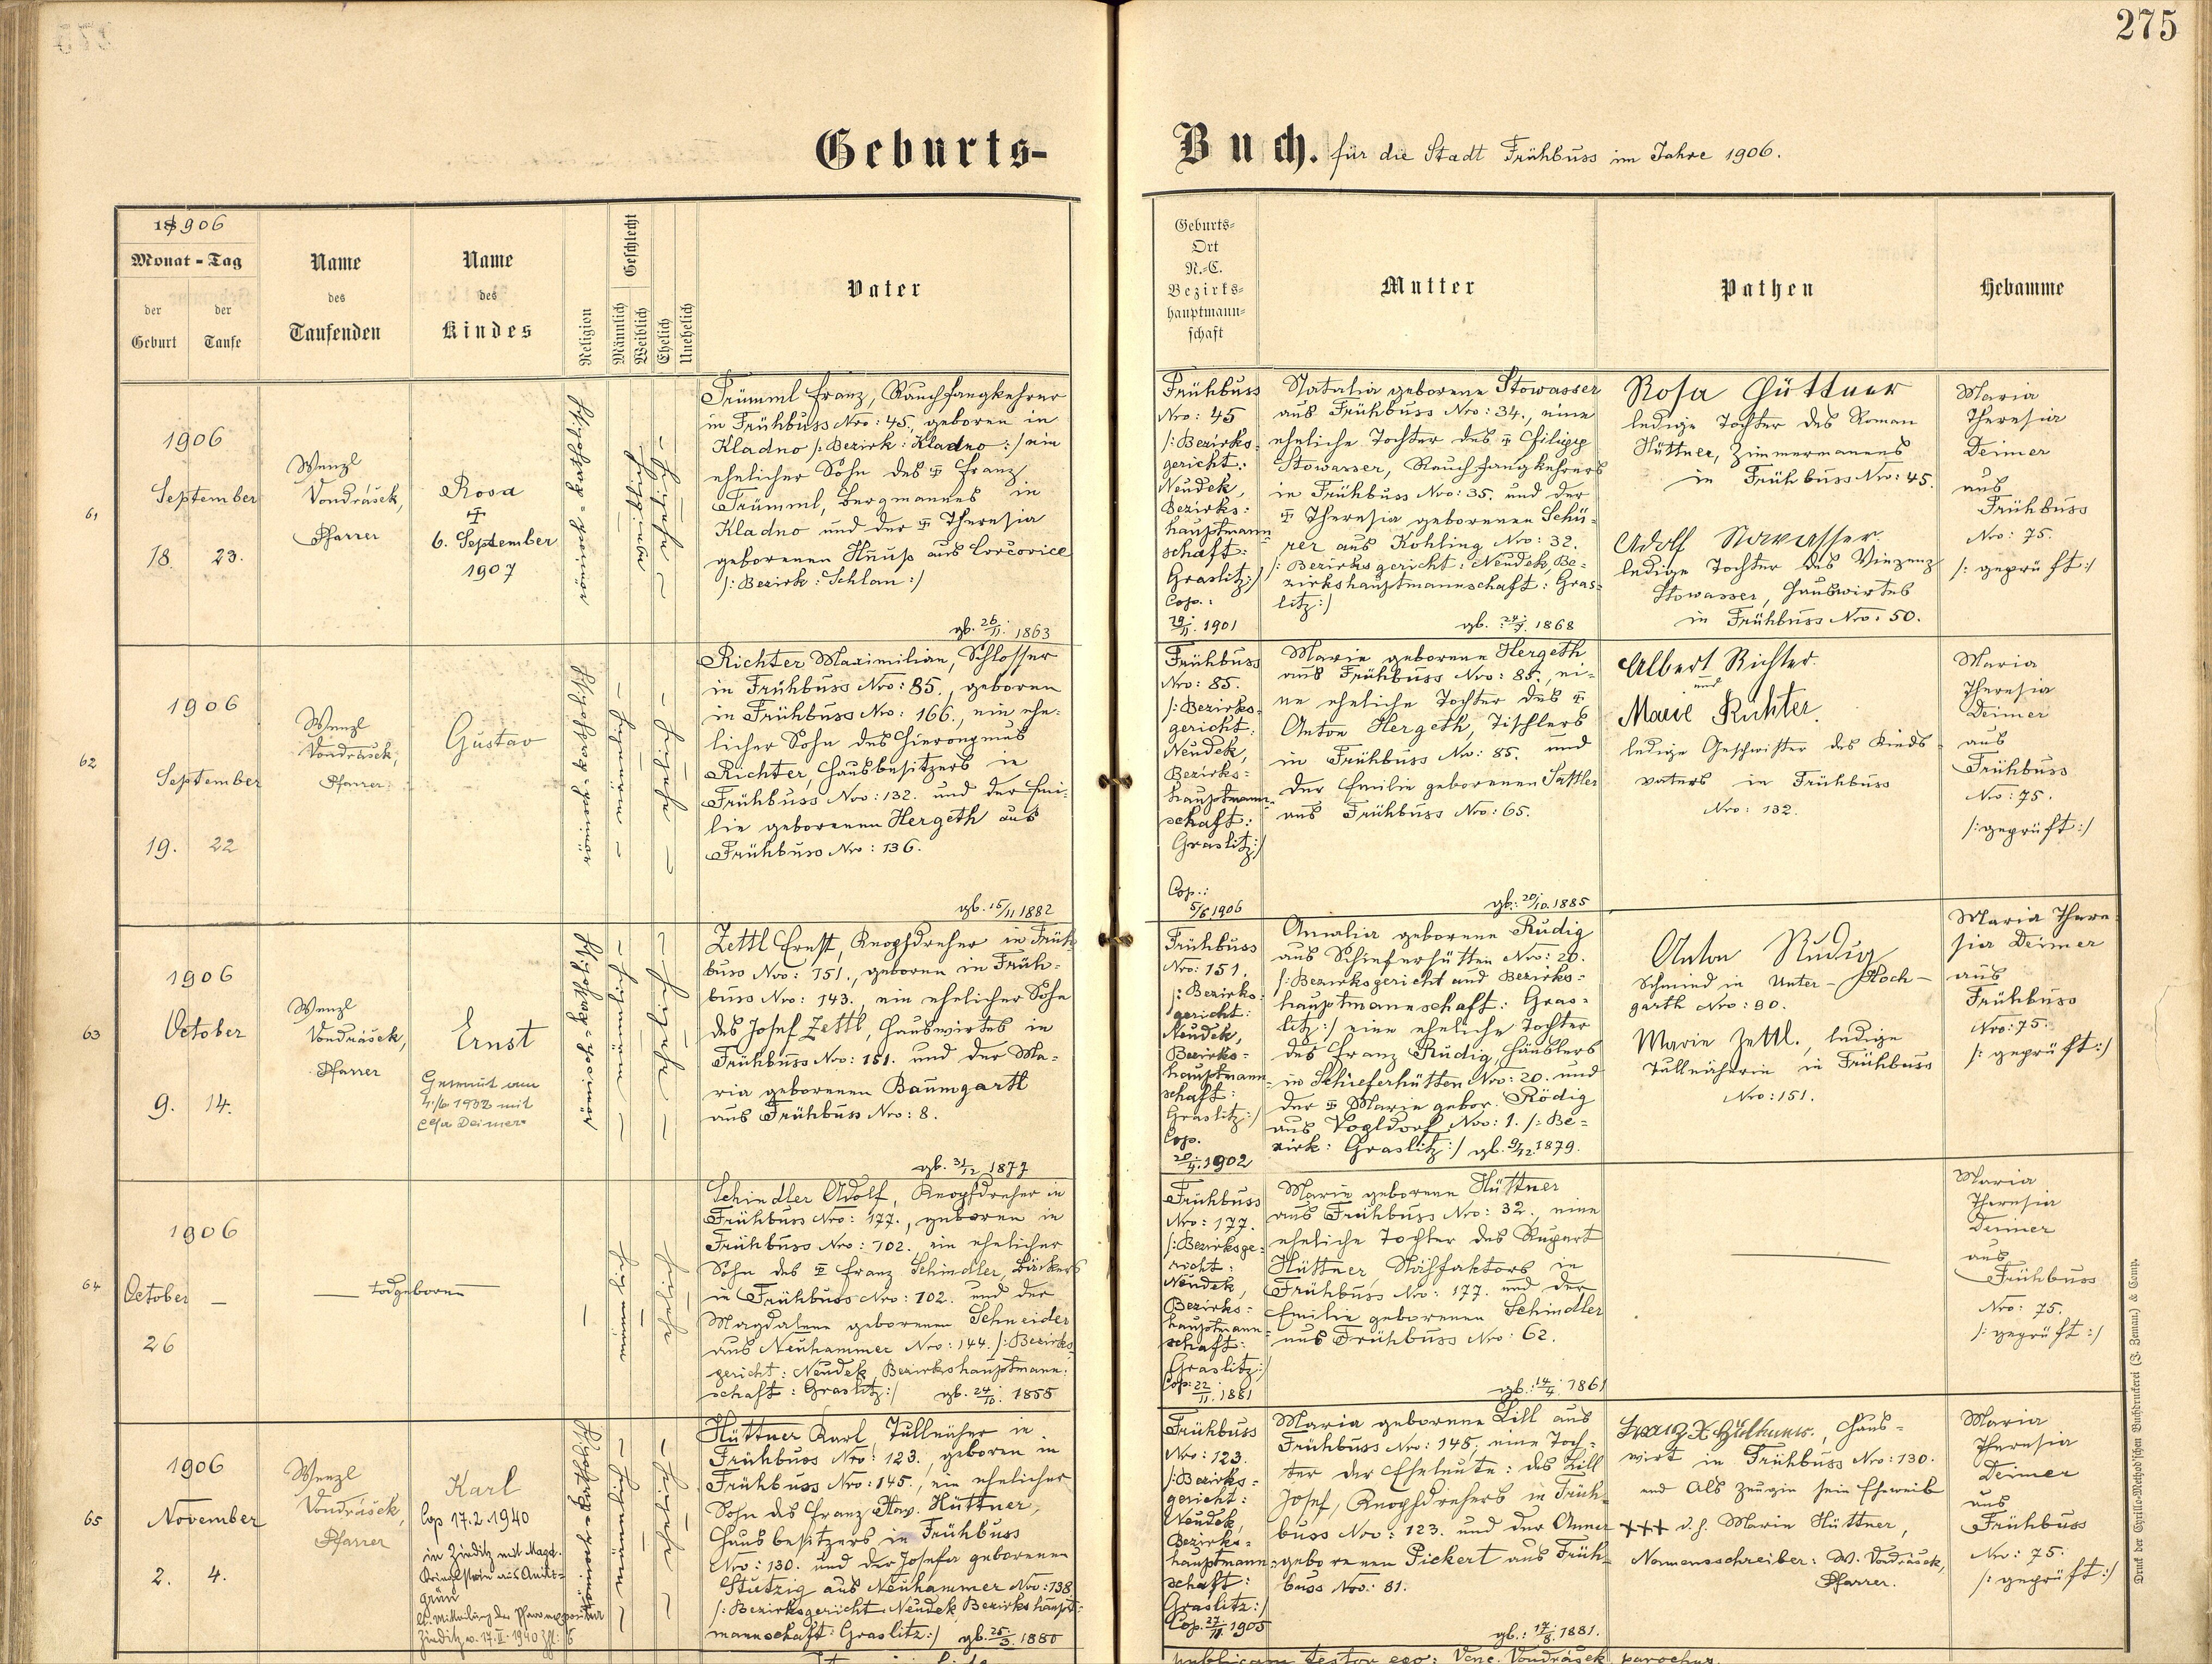 275
Geburts-
Buch. für die Stadt Frühbuss im Jahre 1906.
1906
Monat - Tag
der Geburt
der Taufe
Name des Taufenden
Name des Kindes
Religion
Geschlecht
Männlich
Weiblich
Ehelich
Unehelich
Vater
Geburts-
Ort
N.-C.
Bezirks-
hauptmann-
schaft
Mutter
Pathen
Hebamme
61
1906
September
18. 23.
Wenzl
Vondrášek,
Pfarrer
Rosa
6. September
1907
römisch-katholisch
Trümml Franz, Rauchfangkehrer
in Frühbuss Nro: 45., geboren in
Kladno /: Bezirk: Kladno :/ ein
ehelicher Sohn des ✝ Franz
Trümml, Bergmannes in
Kladno und der ✝ Theresia
geborenen
/: Bezirk: Schlan :/
gb. 26/11. 1863
Frühbuss
Nro: 45
/: Bezirks-
gericht:
Neudek,
Bezirks-
hauptmann-
schaft:
Graslitz:/
Cop.:
1901
Natalia geborene Stowasser
aus Frühbuss Nro: 34., eine
eheliche Tochter des ✝ Philipp
Stowasser, Rauchfangkehrers
in Frühbuss Nro: 35. und der
✝ Theresia geborenen Schü-
rer aus Kohling Nro: 32.
/: Bezirksgericht: Neudek, Be-
zirkshauptmannschaft: Gras-
litz:/
1868
Rosa Hüttner
ledige Tochter des Roman
Hüttner, Zimmermannes
in Frühbuss Nro: 45.
Adolf Stowasser.
ledige Tochter des Vinzenz
Stowasser, Hauswirtes
in Frühbuss Nro: 50.
Maria
Theresia
Deimer
aus
Frühbuss
Nro: 75.
/: geprüft:/
62
1906
September
19. 22
Wenzl
Vondrášek,
Pfarrer
Gustav
römisch-katholisch
Richter Maximilian, Schlosser
in Frühbuss Nro: 85., geboren
in Frühbuss Nro: 166., ein ehe-
licher Sohn des Hieronymus
Richter, Hausbesitzers in
Frühbuss Nro: 132. und der Emi-
lie geborenen Hergeth aus
Frühbuss Nro: 136.
gb. 15/11 1882
Frühbuss
Nro: 85.
/: Bezirks-
gericht:
Neudek,
Bezirks-
hauptmann-
schaft:
Graslitz:/
Cop.:
5/6 1906
Marie geborene Hergeth
aus Frühbuss Nro: 85., ei-
ne eheliche Tochter des ✝
Anton Hergeth, Tischlers
in Frühbuss Nro: 85. und
der Emilie geborenen Sattler
aus Frühbuss Nro: 65.
gb.: 20/10. 1885
Albert Richter.
und
Marie Richter.
ledige Geschwister des Kinds-
vaters in Frühbuss
Nro: 132.
Maria
Theresia
Deimer
aus
Frühbuss
Nro: 75.
/: geprüft:/
63
1906
October
9. 14.
Wenzl
Vondrášek,
Pfarrer
Ernst
Getraut am
mit
Deimer
römisch-katholisch
Zettl Ernst, Knopfdreher in Früh-
buss Nro: 151., geboren in Früh-
buss Nro: 143., ein ehelicher Sohn
des Josef Zettl, Hauswirtes in
Frühbuss Nro: 151. und der Ma-
ria geborenen Baumgartl
aus Frühbuss Nro: 8.
gb. 31/12 1877
Frühbuss
Nro: 151.
/: Bezirks-
gericht:
Neudek,
Bezirks-
hauptmann-
schaft:
Graslitz:/
Cop.
1902
Amalia geborene Rudig
aus Schieferhütten Nro: 20.
/: Bezirksgericht und Bezirks-
hauptmannschaft: Gras-
litz:/ eine eheliche Tochter
des Franz Rudig, Häuslers
in Schieferhütten Nro: 20. und
der ✝ Marie gebor. Rödig
aus Vogldorf Nro: 1. /: Be-
zirk: Graslitz:/ gb. 9/12. 1879.
Anton Rudig
Schmied in Unter-Hoch-
garth Nro: 90.
Marie Zettl., ledige
Tüllnäherin in Frühbuss
Nro: 151.
Maria There-
sia Deimer
aus
Frühbuss
Nro: 75.
/: geprüft:/
64
1906
October –
26
todgeboren
Schindler Adolf, Knopfdreher in
Frühbuss Nro: 177., geboren in
Frühbuss Nro: 102. ein ehelicher
Sohn des ✝ Franz Schindler, Bäckers
in Frühbuss Nro: 102. und der
Magdalena geborenen Schneider
aus Neuhammer Nro: 144. /: Bezirks-
gericht: Neudek, Bezirkshauptmann-
schaft: Graslitz:/ gb. 24/10. 1855
Frühbuss
Nro: 177.
/: Bezirksge-
richt:
Neudek,
Bezirks-
hauptmann-
schaft:
Graslitz:/
Cop: 22/11. 1881
Marie geborene Hüttner
aus Frühbuss Nro: 32., eine
eheliche Tochter des Rupert
Hüttner, in
Frühbuss Nro: 177. und der
Emilie geborenen Schindler
aus Frühbuss Nro: 62.
gb.: 14/4. 1861
Maria
Theresia
Deimer
aus
Frühbuss
Nro: 75.
/: geprüft:/
65
1906
November
2. 4.
Wenzl
Vondrášek,
Pfarrer
Karl
Cop 17.2.1940
in Zieditz mit Magd.
römisch-katholisch
Hüttner Karl Tüllnäher in
Frühbuss Nro: 123., geboren in
Frühbuss Nro: 145., ein ehelicher
Sohn des Franz Xav. Hüttner,
Hausbesitzers in Frühbuss
Nro: 130. und der Josefa geborenen
Stutzig aus Neuhammer Nro: 138
/: Bezirksgericht: Neudek Bezirkshaupt-
mannschaft: Graslitz:/ gb. 25/3. 1880
Frühbuss
Nro: 123.
/: Bezirks-
gericht:
Neudek,
Bezirks-
hauptmann-
schaft:
Graslitz:/
Cop. 1905
Maria geborene Lill aus
Frühbuss Nro: 145, eine Toch-
ter der Eheleute: des Lill
Josef, Knopfdrehers in Früh-
buss Nro: 123. und der Anna
geborenen Pickert aus Früh-
buss Nro: 81.
gb.: 17/8. 1881.
Franz X. Hüttner, Haus-
wirt in Frühbuss Nro: 130.
und als Zeugin sein Eheweib
+++ d.h. Marie Hüttner,
Namensschreiber: W. Vondrášek,
Pfarrer.
Maria
Theresia
Deimer
aus
Frühbuss
Nro: 75.
/: geprüft:/
publicam testor ego: Venc. Vondrášek parochus.
Druck der Cyrillo-Method'schen Buchdruckerei (J. Zeman) & Comp.